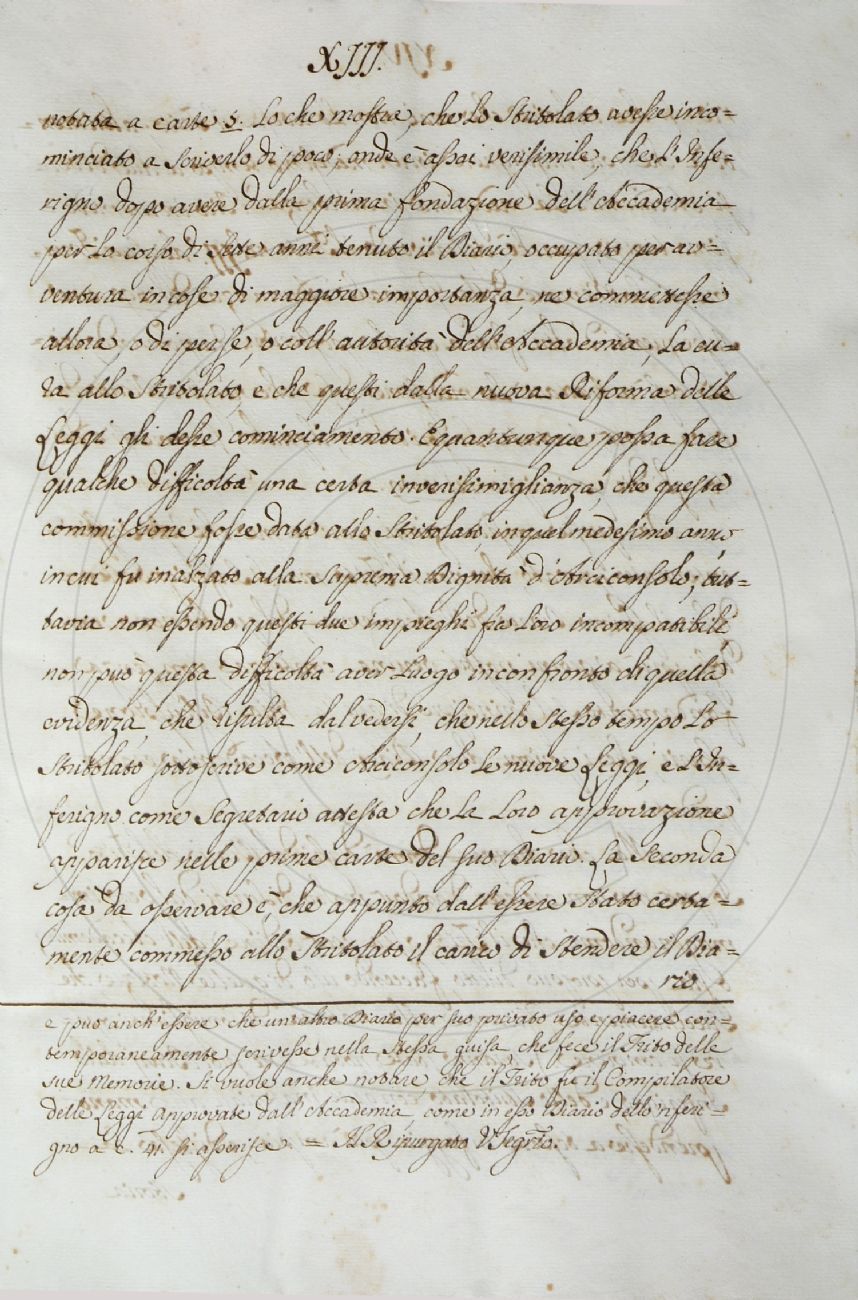 XIII.
notata a carte 5. Lo che mostra, che lo Stritolato avesse inco=
minciato a scriverlo di poco; onde è assai verisimile, che l'Infe=
rigno dopo avere dalla prima fondazione dell'Accademia
per lo corso di sette anni tenuto il Diario, occupato per av=
ventura in cose di maggiore importanza, ne commettesse
allora, o di perse, o coll'autorità dell'Accademia, la cu=
ra allo Stritolato, e che questi dalla nuova Riforma delle
Leggi gli desse cominciamento. Equantunque possa fare
qualche difficoltà una certa inverisimiglianza che questa
commissione fosse data allo Stritolato, in quel medesimo anno
in cui fu inalzato alla suprema Dignità d'Arciconsolo; tut=
tavia non essendo questi due impieghi fra loro incompatibili,
non può questa difficoltà aver luogo in confronto di quella
evidenza, che risulta dal vedersi, che nello stesso tempo lo
Stritolato sottoscrive come Arciconsolo le nuove Leggi, e l'In=
ferigno come Segretario attesta che la loro approvazione
apparisce nelle prime carte del suo Diario. La seconda
cosa da osservare è, che appunto dall'essere stato certa=
mente commesso allo Stritolato il carico di stendere il Dia=
rio
e può anch'essere che un'altro Diario per suo privato uso e piacere con=
temporaneamente scrivesse nella stessa guisa, che fece il Trito delle
sue memorie. Si vuole anche notare che il Trito fu il Compilatore
delle Leggi approvate dall'Accademia come in esso Diario dello 'nferi=
gno a c. 41. si asserisce. = Il Ripurgato V. Segrio.